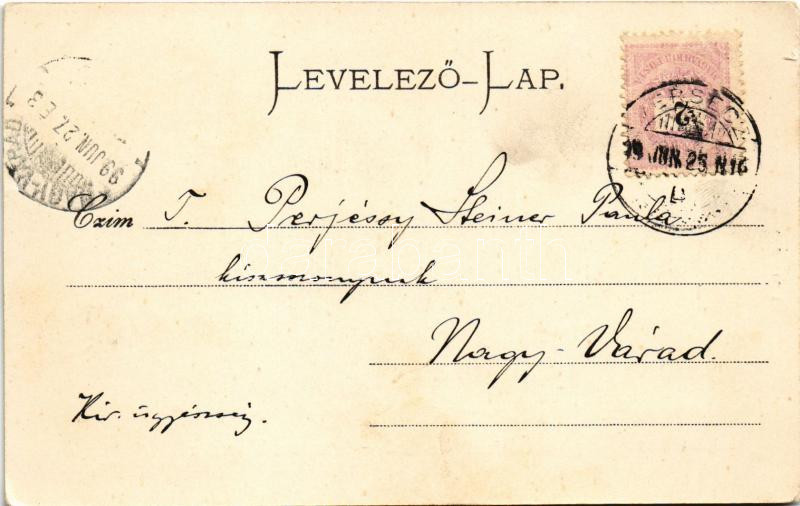 LEVELEZŐ-LAP.
VERSECZ
99 JUN 25 N12
2
NAGY-VÁRAD
99 JUN 27 E 3
Czim T. Perjéssy Steiner Paula
kisasszonynak
Nagy-Várad.
Kir. ügyészség.